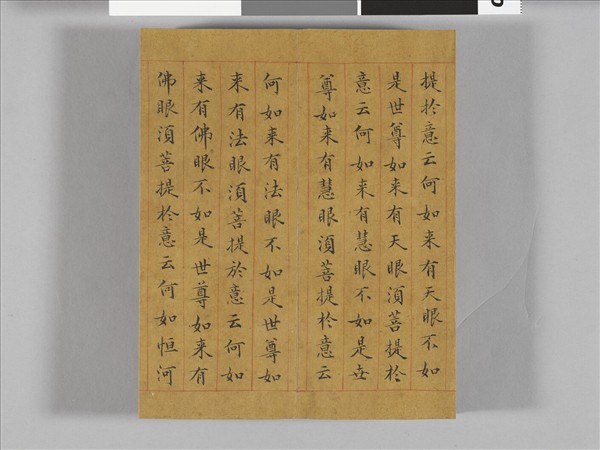 提於意云何如来有天眼不如
是世尊如来有天眼湏菩提於
意云何如来有慧眼不如是世
尊如来有慧眼湏菩提於意云
何如来有法眼不如是世尊如
来有法眼湏菩提於意云何如
来有佛眼不如是世尊如来有
佛眼湏菩提於意云何如恒河